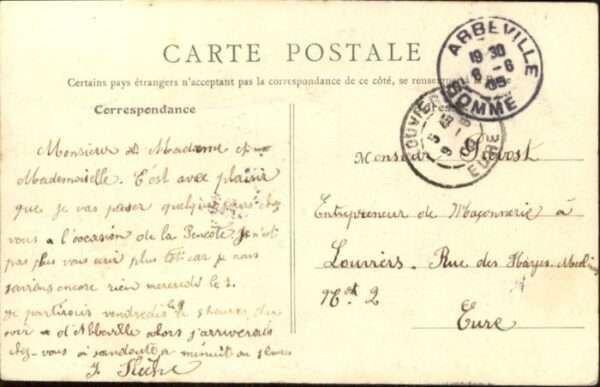 CARTE POSTALE
Certains pays étrangers n'acceptant pas la correspondance de ce côté, se renseigner à la
Correspondance
ABBEVILLE
19 30
8-6
05
SOMME
LOUVIERS
EURE
Monsieur & Madame
Mademoiselle. C'est avec plaisir
que je vas passer quelques jours chez
vous a l'occasion de la Pencôte je n'ai
pas plus vous plus tôt car je
encore rien mercredi le
je partirois vendredi le 9 heures du
soir d'Abbeville alors j'arriverais
chez-vous à minuit ou
Monsieur Prévost
Entrepreneur de Maçonnerie à
Louviers. Rue des
N° 2
Eure